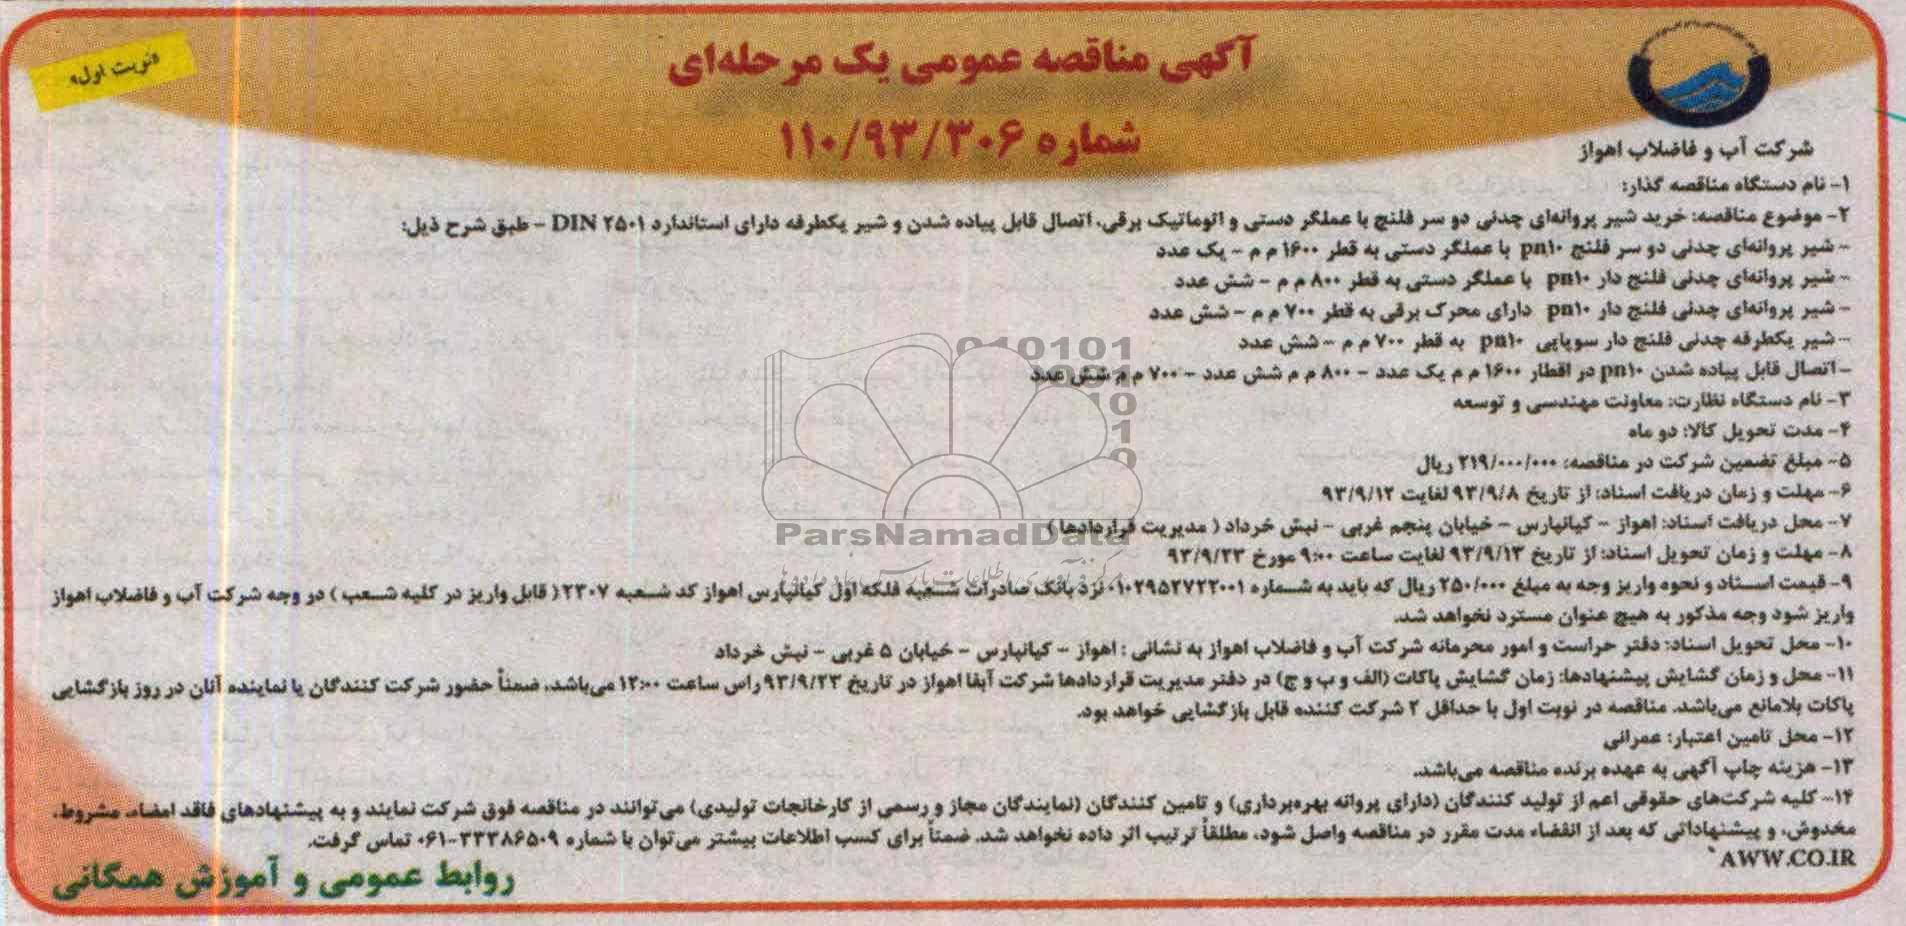 آگهی مناقصه عمومی یک مرحله‌ای
«نوبت اول»
شماره ۱۱۰/۹۳/۳۰۶
شرکت آب و فاضلاب اهواز
۱- نام دستگاه مناقصه گذار:
۲- موضوع مناقصه: خرید شیر پروانه‌ای چدنی دو سر فلنج با عملگر دستی و اتوماتیک برقی، اتصال قابل پیاده شدن و شیر یکطرفه دارای استاندارد DIN ۲۵۰۱ - طبق شرح ذیل:
- شیر پروانه‌ای چدنی دو سر فلنج pn۱۰ با عملگر دستی به قطر ۱۶۰۰ م م - یک عدد
- شیر پروانه‌ای چدنی فلنج دار pn۱۰ با عملگر دستی به قطر ۸۰۰ م م - شش عدد
- شیر پروانه‌ای چدنی فلنج دار pn۱۰ دارای محرک برقی به قطر ۷۰۰ م م - شش عدد
- شیر یکطرفه چدنی فلنج دار سوپاپی pn۱۰ به قطر ۷۰۰ م م - شش عدد
- اتصال قابل پیاده شدن pn۱۰ در اقطار ۱۶۰۰ م م یک عدد - ۸۰۰ م م شش عدد - ۷۰۰ م م شش عدد
۳- نام دستگاه نظارت: معاونت مهندسی و توسعه
۴- مدت تحویل کالا: دو ماه
۵- مبلغ تضمین شرکت در مناقصه: ۲۱۹/۰۰۰/۰۰۰ ریال
۶- مهلت و زمان دریافت اسناد: از تاریخ ۹۳/۹/۸ لغایت ۹۳/۹/۱۲
۷- محل دریافت اسناد: اهواز - کیانپارس - خیابان پنجم غربی - نبش خرداد ( مدیریت قراردادها )
۸- مهلت و زمان تحویل اسناد: از تاریخ ۹۳/۹/۱۳ لغایت ساعت ۹:۰۰ مورخ ۹۳/۹/۲۳
۹- قیمت اسناد و نحوه واریز وجه به مبلغ ۲۵۰/۰۰۰ ریال که باید به شماره ۰۱۰۲۹۵۲۷۲۲۰۰۱ نزد بانک صادرات شعبه فلکه اول کیانپارس اهواز کد شعبه ۲۳۰۷ ( قابل واریز در کلیه شعب ) در وجه شرکت آب و فاضلاب اهواز
واریز شود وجه مذکور به هیچ عنوان مسترد نخواهد شد.
۱۰- محل تحویل اسناد: دفتر حراست و امور محرمانه شرکت آب و فاضلاب اهواز به نشانی : اهواز - کیانپارس - خیابان ۵ غربی - نبش خرداد
۱۱- محل و زمان گشایش پیشنهادها: زمان گشایش پاکات (الف و ب و ج) در دفتر مدیریت قراردادها شرکت آبفا اهواز در تاریخ ۹۳/۹/۲۳ راس ساعت ۱۲:۰۰ می‌باشد، ضمناً حضور شرکت کنندگان یا نماینده آنان در روز بازگشایی
پاکات بلامانع می‌باشد. مناقصه در نوبت اول با حداقل ۲ شرکت کننده قابل بازگشایی خواهد بود.
۱۲- محل تامین اعتبار: عمرانی
۱۳- هزینه چاپ آگهی به عهده برنده مناقصه می‌باشد.
۱۴- کلیه شرکت‌های حقوقی اعم از تولید کنندگان (دارای پروانه بهره‌برداری) و تامین کنندگان (نمایندگان مجاز و رسمی از کارخانجات تولیدی) می‌توانند در مناقصه فوق شرکت نمایند و به پیشنهادهای فاقد امضاء، مشروط،
مخدوش، و پیشنهاداتی که بعد از انقضاء مدت مقرر در مناقصه واصل شود، مطلقاً ترتیب اثر داده نخواهد شد. ضمناً برای کسب اطلاعات بیشتر می‌توان با شماره ۳۳۳۸۶۵۰۹-۰۶۱ تماس گرفت.
AWW.CO.IR
روابط عمومی و آموزش همگانی
ParsNamadData